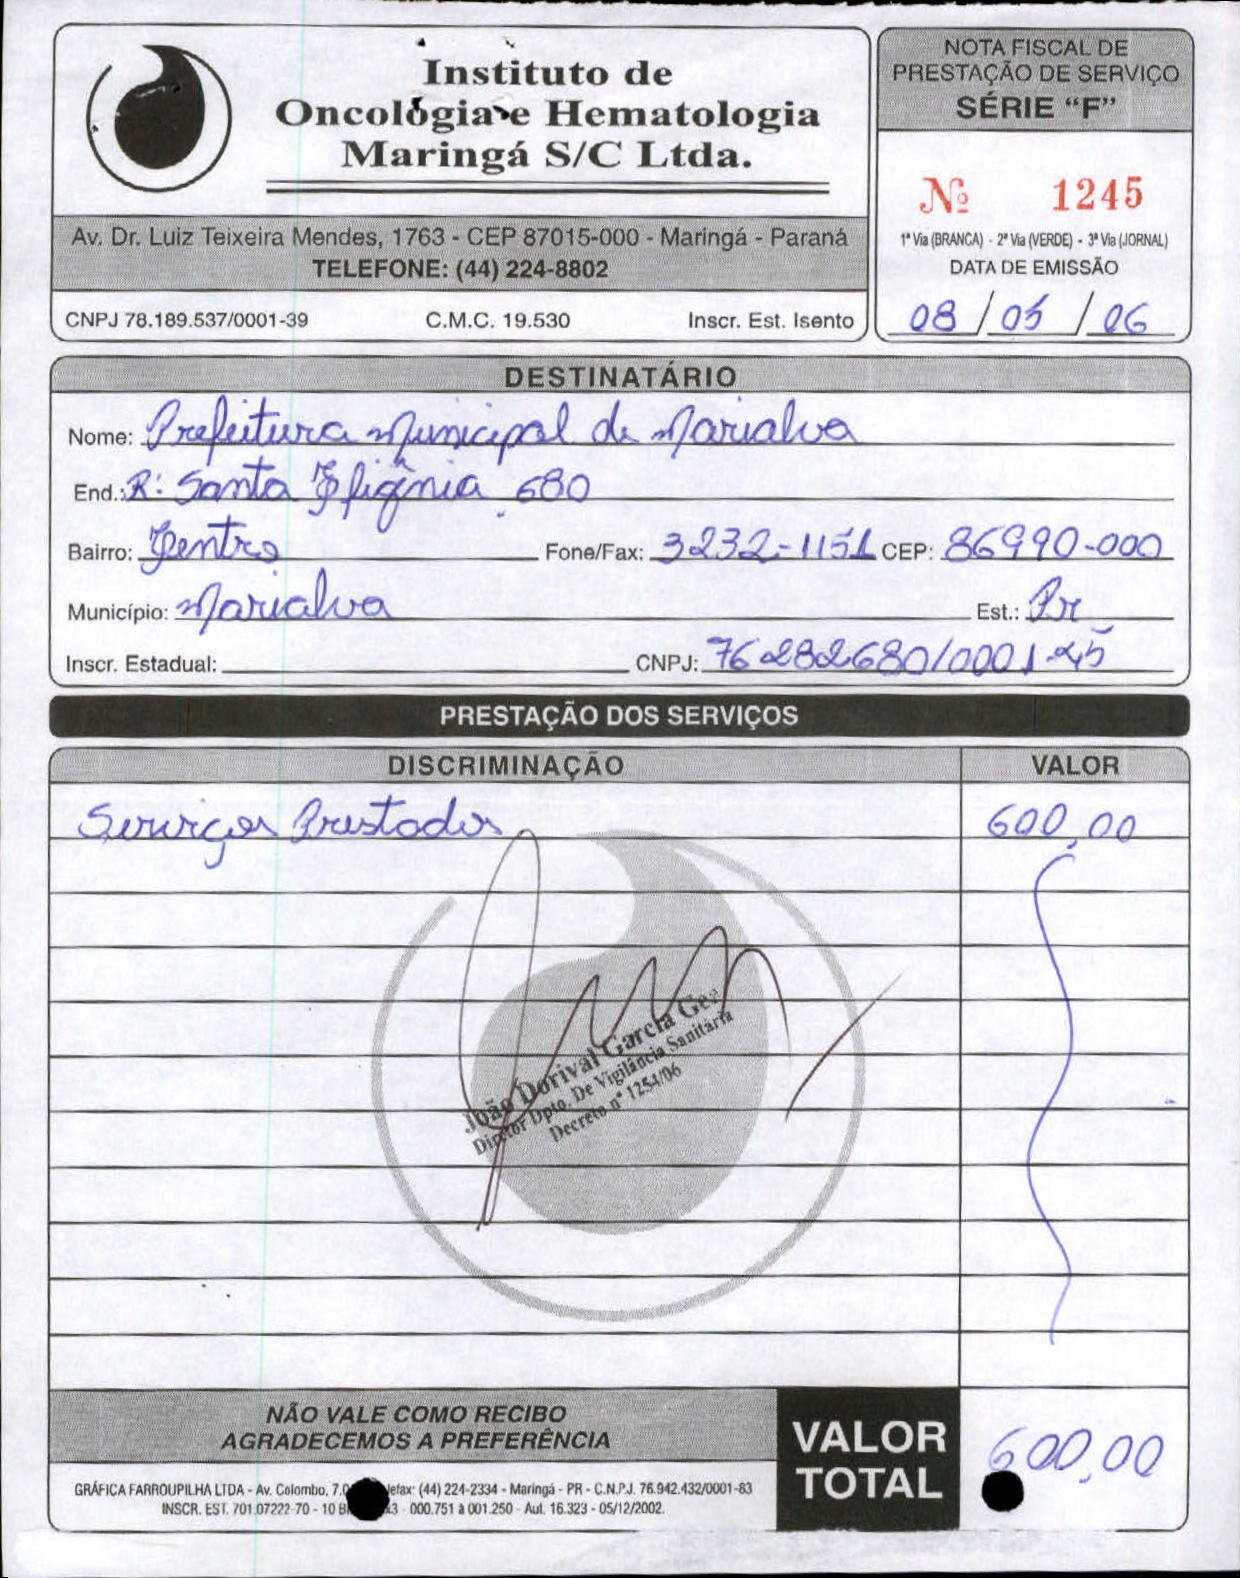 Instituto de
Oncologia e Hematologia
Maringá S/C Ltda.
Av. Dr. Luiz Teixeira Mendes, 1763 - CEP 87015-000 - Maringá - Paraná
TELEFONE: (44) 224-8802
CNPJ 78.189.537/0001-39 C.M.C. 19.530 Inscr. Est. Isento
NOTA FISCAL DE
PRESTAÇÃO DE SERVIÇO
SÉRIE “F”
Nº 1245
1ª Via (BRANCA) - 2ª Via (VERDE) - 3ª Via (JORNAL)
DATA DE EMISSÃO
08 / 05 / 06
DESTINATÁRIO
Nome: Prefeitura Municipal de Marialva
End.: R: Santa Efigênia, 680
Bairro: Centro Fone/Fax: 3232-1151 CEP: 86990-000
Município: Marialva Est.: Pr
Inscr. Estadual: CNPJ: 76282680/0001-45
PRESTAÇÃO DOS SERVIÇOS
DISCRIMINAÇÃO VALOR
Serviços Prestados 600,00
João Dorival Garcia Gea
Diretor Dpto. De Vigilância Sanitária
Decreto nº 1254/06
NÃO VALE COMO RECIBO
AGRADECEMOS A PREFERÊNCIA
VALOR
TOTAL
600,00
GRÁFICA FARROUPILHA LTDA - Av. Colombo, 7.0 lefax: (44) 224-2334 - Maringá - PR - C.N.P.J. 76.942.432/0001-83
INSCR. EST. 701.07222-70 - 10 Bl x3 - 000.751 à 001.250 - Aut. 16.323 - 05/12/2002.